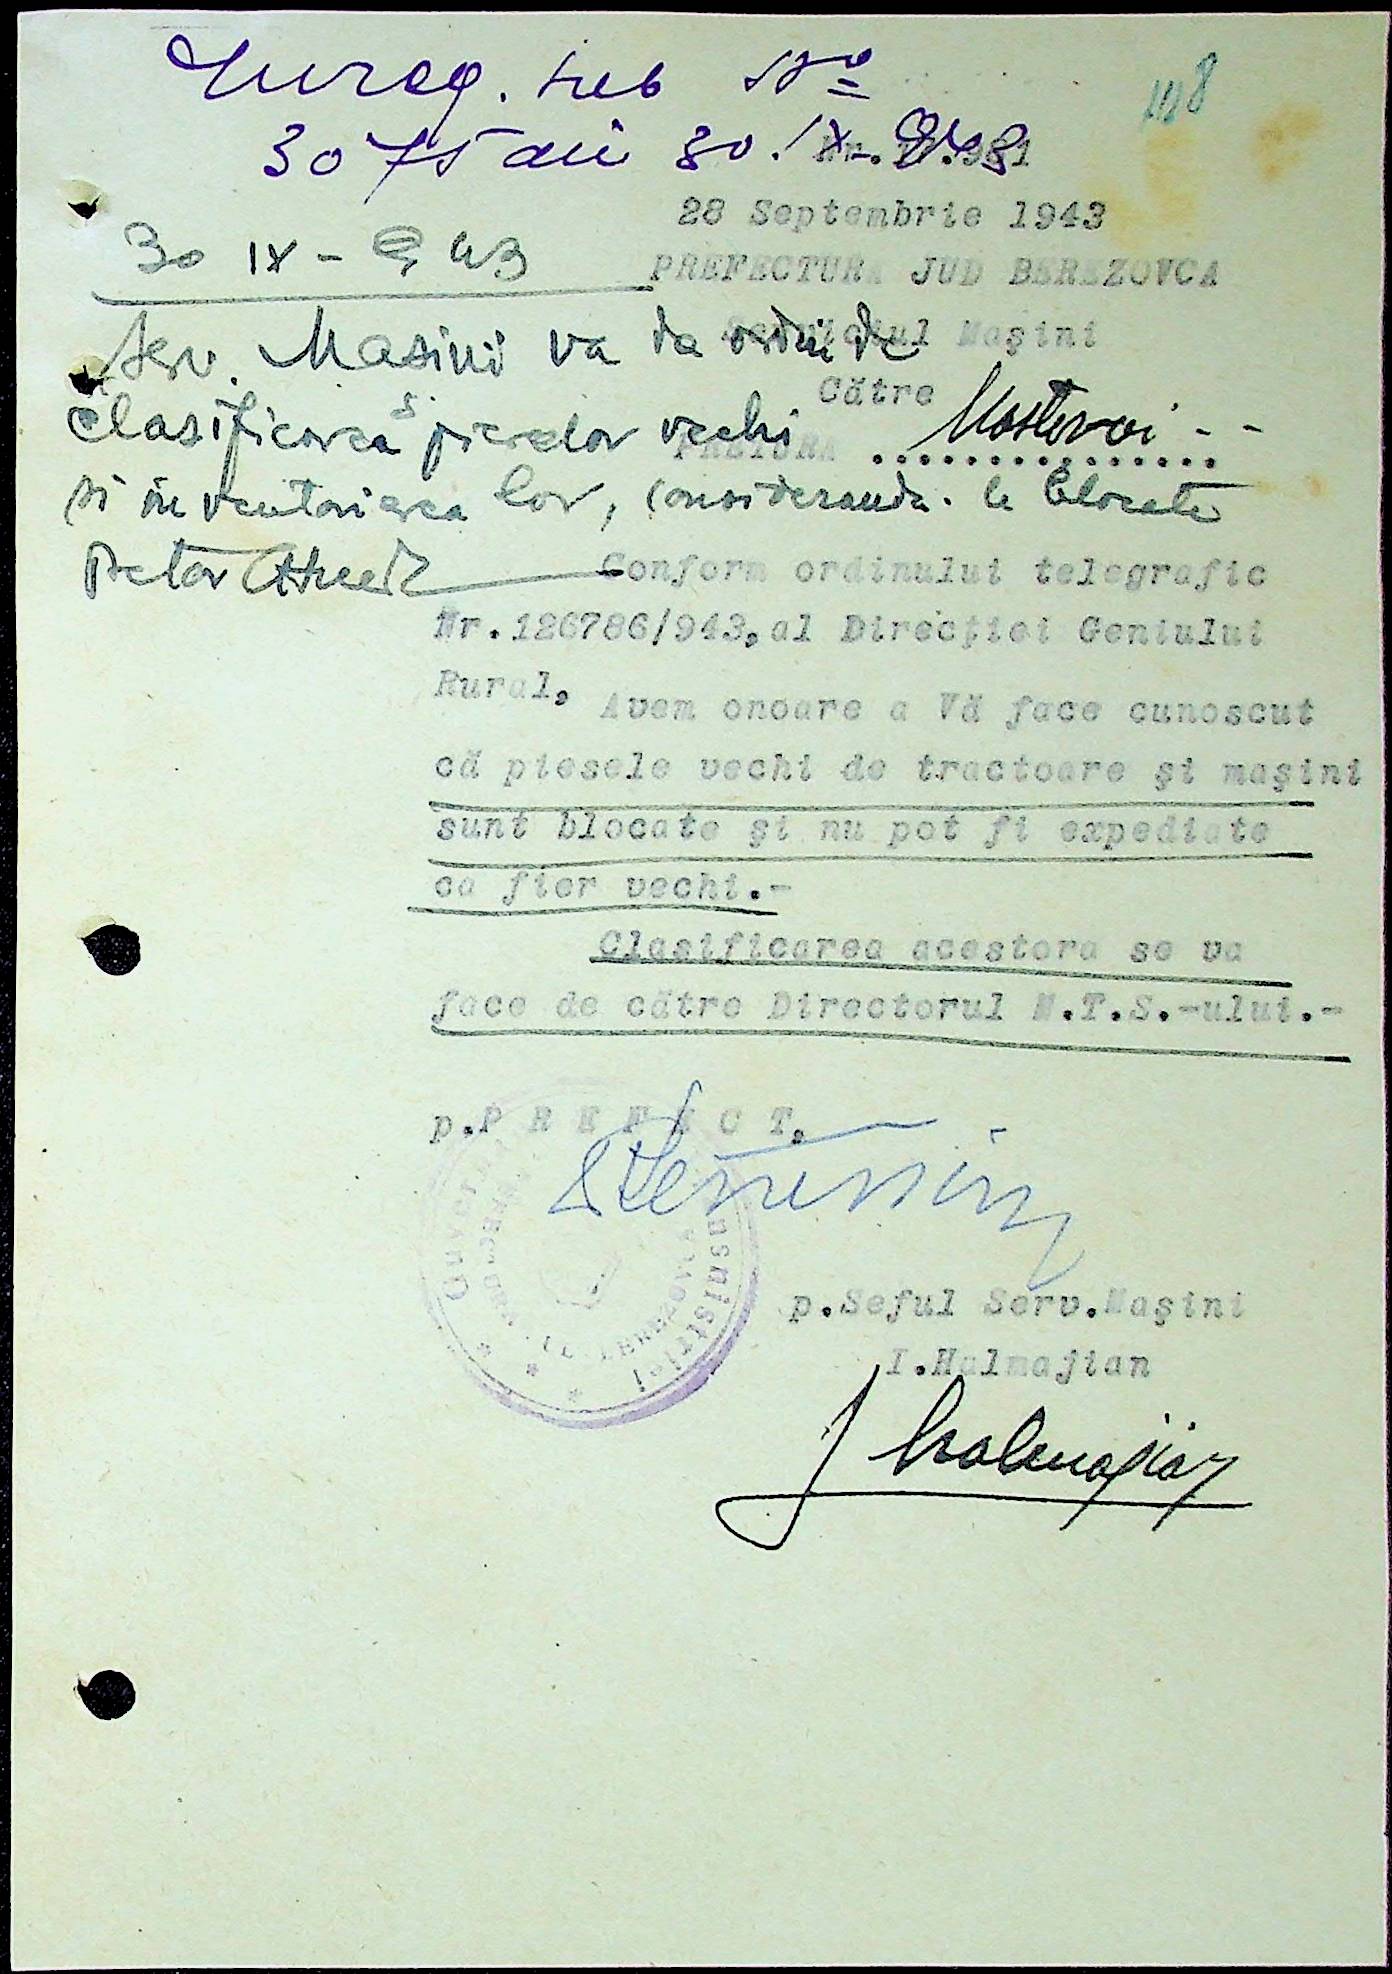 Inreg. sub No
3075 din 30.IX-943
28 Septembrie 1943
30 IX-943
PREFECTURA JUD BEREZOVCA
Serviciul Maşini
Serv. Masini va da ordin de
Către
clasificarea pieselor vechi
PRETURA Mostovoi --
si inventarierea lor, considerandu-le blocate
Pretor
Conform ordinului telegrafic
Nr.126786/943,al Direcţiei Geniului
Rural,
Avem onoare a Vă face cunoscut
că piesele vechi de tractoare şi maşini
sunt blocate şi nu pot fi expediate
ca fier vechi.-
Clasificarea acestora se va
face de către Directorul M.T.S.-ului.-
p.P R E F E C T,
p.Seful Serv.Maşini
I.Halmajian
I Halmajian